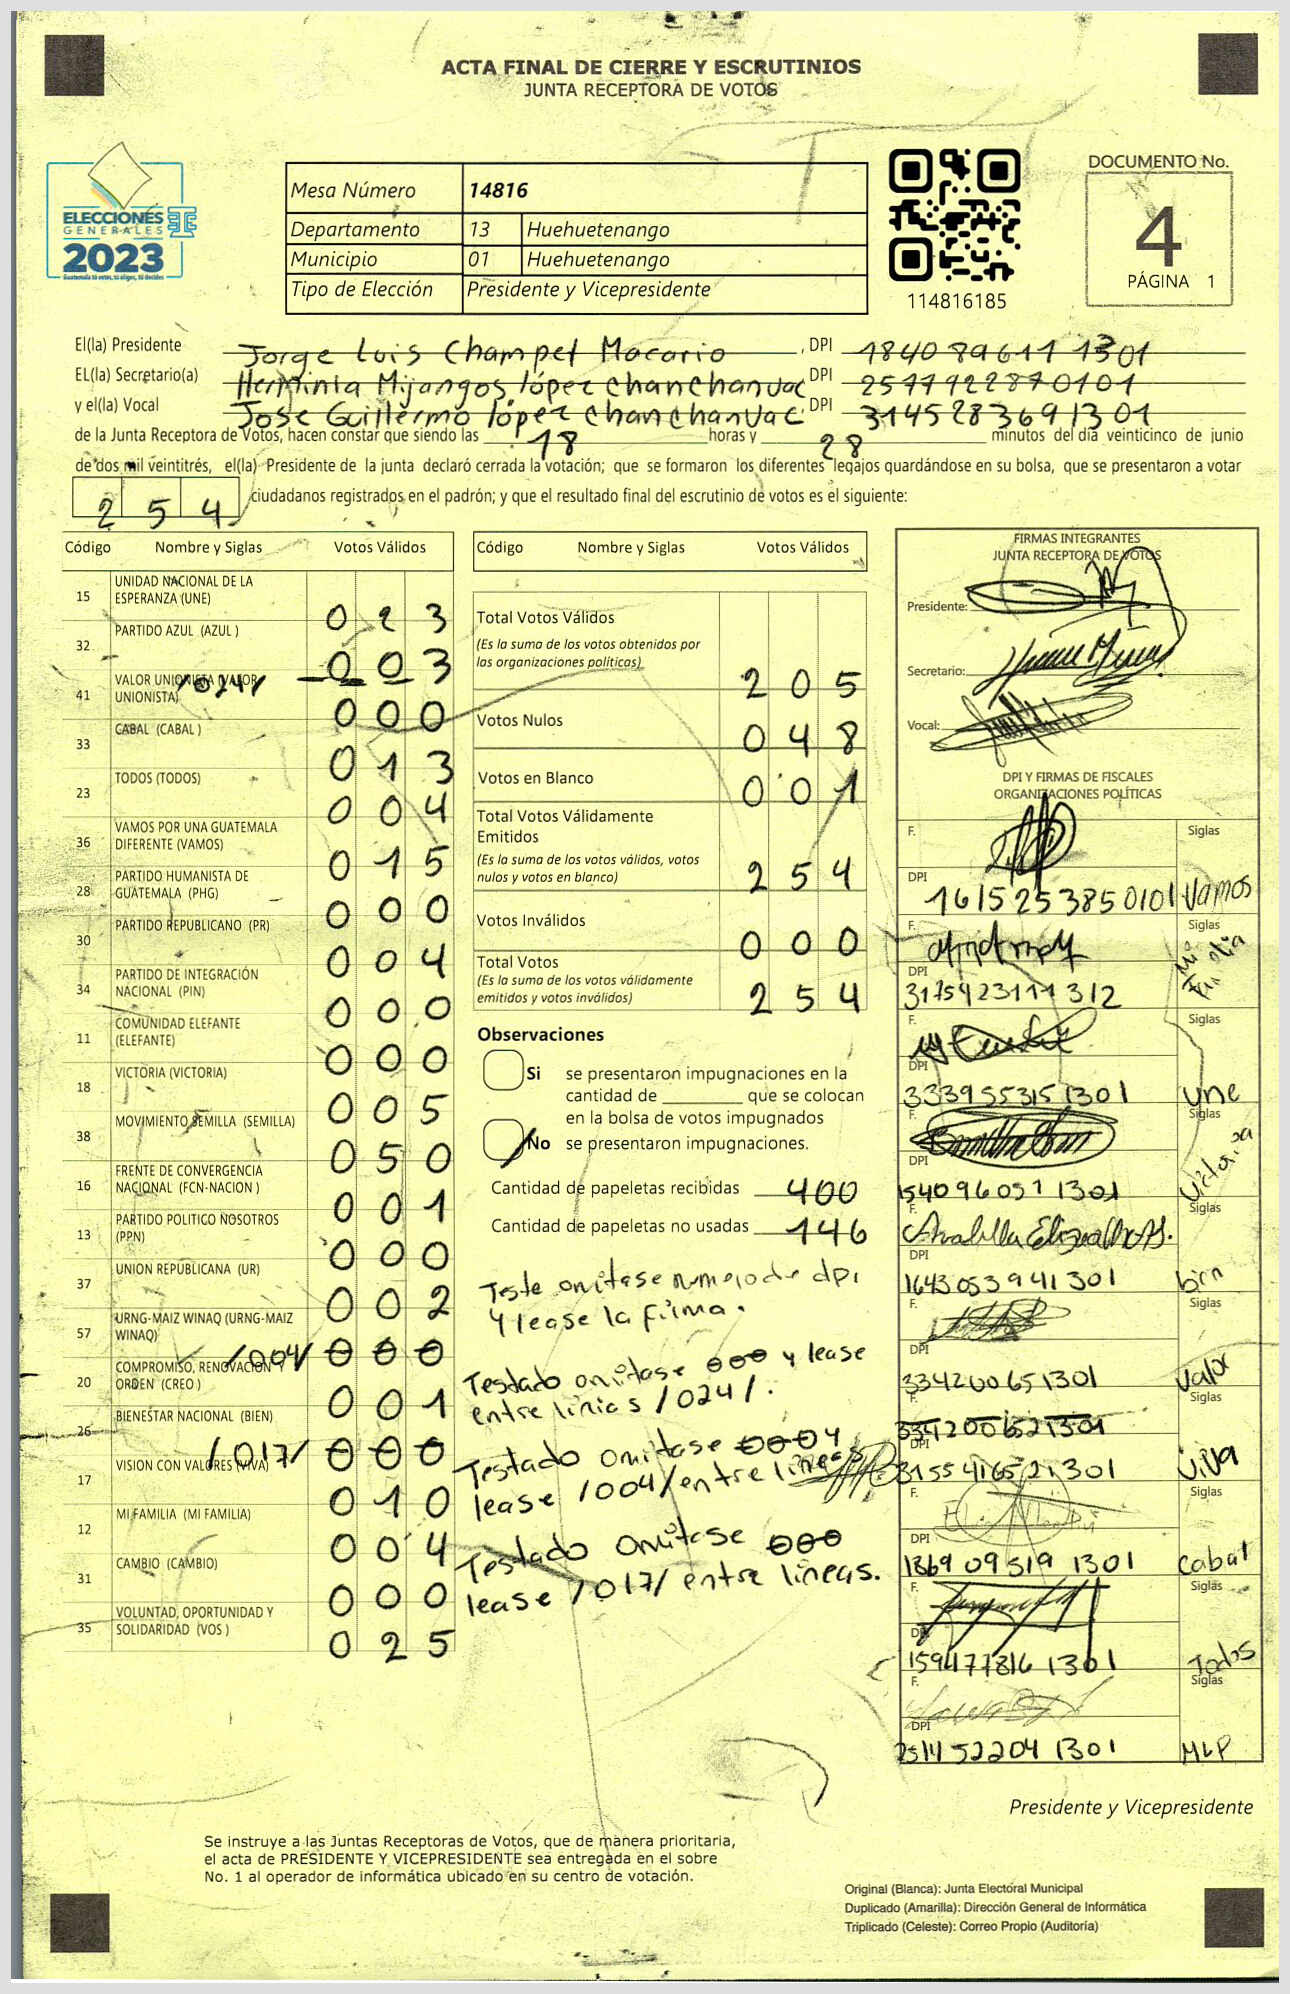 ACTA FINAL DE CIERRE Y ESCRUTINIOS
JUNTA RECEPTORA DE VOTOS
ELECCIONES
GENERALES
2023
Mesa Número 14816
Departamento 13 Huehuetenango
Municipio 01 Huehuetenango
Tipo de Elección Presidente y Vicepresidente
114816185
DOCUMENTO No.
4
PÁGINA 1
El(la) Presidente Jorge Luis Champet Macario, DPI 184089611 1301
EL(la) Secretario(a) Herminia Mijangos lópez chanchanvac DPI 2577922870101
y el(la) Vocal José Guillermo lópez chanchanvac DPI 3145283691301
de la Junta Receptora de Votos, hacen constar que siendo las 18 horas y 28 minutos del día veinticinco de junio
de dos mil veintitrés, el(la) Presidente de la junta declaró cerrada la votación; que se formaron los diferentes legajos guardándose en su bolsa, que se presentaron a votar
254 ciudadanos registrados en el padrón; y que el resultado final del escrutinio de votos es el siguiente:
Código Nombre y Siglas Votos Válidos
15 UNIDAD NACIONAL DE LA ESPERANZA (UNE) 023
32 PARTIDO AZUL (AZUL ) 003
41 VALOR UNIONISTA (VALOR UNIONISTA) /024/ 000
33 CABAL (CABAL ) 013
23 TODOS (TODOS) 004
36 VAMOS POR UNA GUATEMALA DIFERENTE (VAMOS) 015
28 PARTIDO HUMANISTA DE GUATEMALA (PHG) 000
30 PARTIDO REPUBLICANO (PR) 004
34 PARTIDO DE INTEGRACIÓN NACIONAL (PIN) 000
11 COMUNIDAD ELEFANTE (ELEFANTE) 000
18 VICTORIA (VICTORIA) 005
38 MOVIMIENTO SEMILLA (SEMILLA) 050
16 FRENTE DE CONVERGENCIA NACIONAL (FCN-NACION ) 001
13 PARTIDO POLITICO NOSOTROS (PPN) 000
37 UNION REPUBLICANA (UR) 002
57 URNG-MAIZ WINAQ (URNG-MAIZ WINAQ) /004/ 000
20 COMPROMISO, RENOVACIÓN Y ORDEN (CREO ) 001
26 BIENESTAR NACIONAL (BIEN) /017/ 000
17 VISION CON VALORES (VIVA) 010
12 MI FAMILIA (MI FAMILIA) 004
31 CAMBIO (CAMBIO) 000
35 VOLUNTAD, OPORTUNIDAD Y SOLIDARIDAD (VOS ) 025
Código Nombre y Siglas Votos Válidos
Total Votos Válidos
(Es la suma de los votos obtenidos por
las organizaciones políticas) 205
Votos Nulos 048
Votos en Blanco 001
Total Votos Válidamente
Emitidos
(Es la suma de los votos válidos, votos
nulos y votos en blanco) 254
Votos Inválidos 000
Total Votos
(Es la suma de los votos válidamente
emitidos y votos inválidos) 254
Observaciones
Si se presentaron impugnaciones en la
cantidad de ________ que se colocan
en la bolsa de votos impugnados
No se presentaron impugnaciones.
Cantidad de papeletas recibidas 400
Cantidad de papeletas no usadas 146
Teste omitase numero de dpi
y lease la firma.
Testado omitase 000 y lease
entre linias /024/.
Testado omitase 000 y
lease /004/ entre lineas
Testado omitase 000
lease /017/ entre lineas.
FIRMAS INTEGRANTES
JUNTA RECEPTORA DE VOTOS
Presidente:
Secretario:
Vocal:
DPI Y FIRMAS DE FISCALES
ORGANIZACIONES POLÍTICAS
F. Siglas
DPI 1615253850101 Vamos
F. Siglas
DPI 3175423111312 Mi Familia
F. Siglas
DPI 3339553151301 une
F. Siglas
DPI 1540960571301 Victoria
F. Siglas
DPI 1643053941301 bien
F. Siglas
DPI 334200651301 Valor
Siglas
3342006521301
DPI 3155416521301 ViVa
F. Siglas
DPI 1369095191301 Cabal
F. Siglas
DPI 1594778161301 Todos
F. Siglas
DPI 2514522041301 MLP
Presidente y Vicepresidente
Se instruye a las Juntas Receptoras de Votos, que de manera prioritaria,
el acta de PRESIDENTE Y VICEPRESIDENTE sea entregada en el sobre
No. 1 al operador de informática ubicado en su centro de votación.
Original (Blanca): Junta Electoral Municipal
Duplicado (Amarilla): Dirección General de Informática
Triplicado (Celeste): Correo Propio (Auditoría)